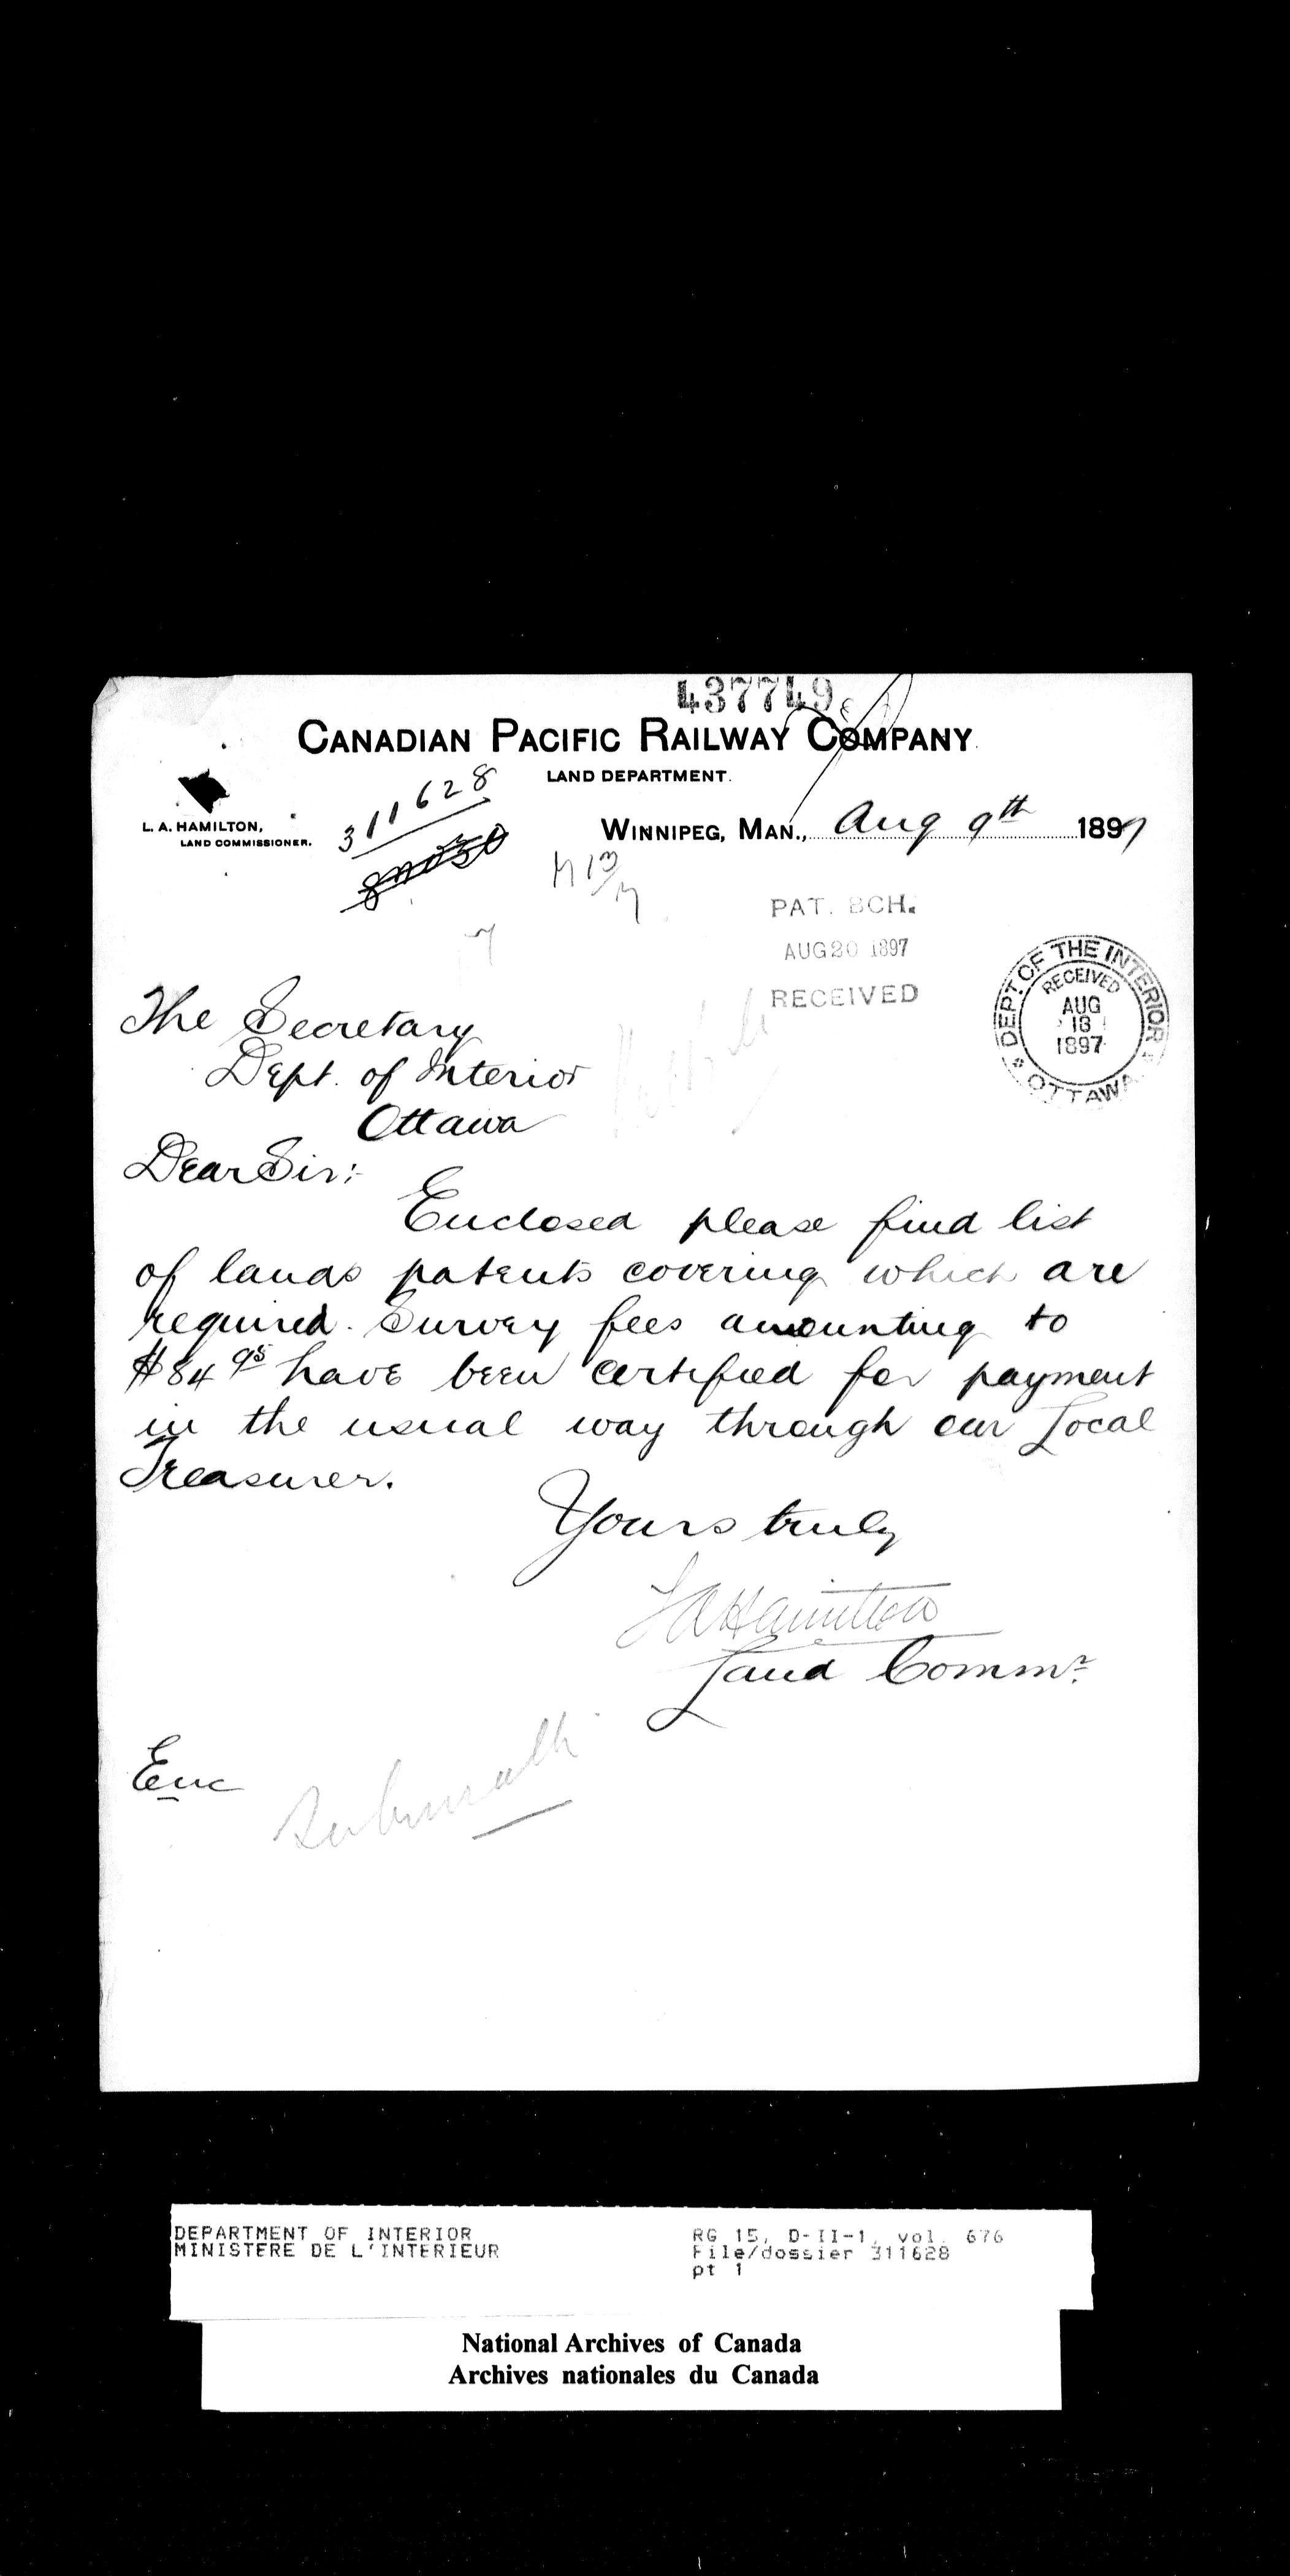 437749
CANADIAN PACIFIC RAILWAY COMPANY.
LAND DEPARTMENT.
L. A. HAMILTON,
LAND COMMISSIONER.
311628
WINNIPEG, MAN., Aug 9th 1897
PAT. BCH.
AUG 20 1897
RECEIVED
DEPT. OF THE INTERIOR
RECEIVED
AUG
18
1897
OTTAWA
The Secretary
Dept. of Interior
Ottawa
Dear Sir:-
Enclosed please find list
of lands patents covering which are
required. Survey fees amounting to
$84 95 have been certified for payment
in the usual way through our Local
Treasurer.
Yours truly
L A Hamilton
Land Commr.
Enc
DEPARTMENT OF INTERIOR
MINISTERE DE L'INTERIEUR
RG 15, D-II-1, vol. 676
File/dossier 311628
pt 1
National Archives of Canada
Archives nationales du Canada